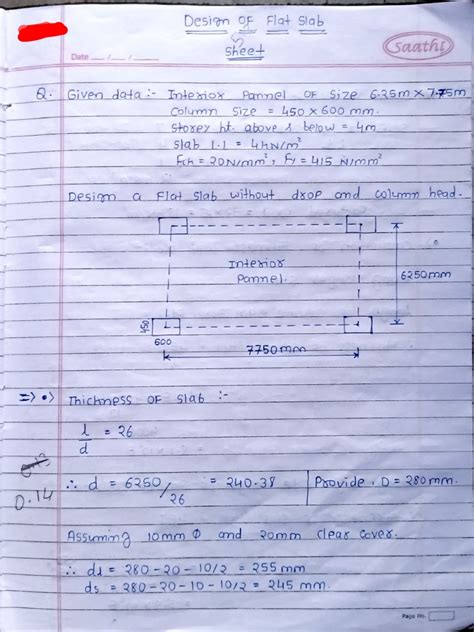 Design of Flat Slab
Sheet
Saathi
Date ..../..../....
Q. Given data :- Interior Pannel of size 6.25m x 7.75m
Column size = 450 x 600 mm.
Storey ht. above & below = 4m
Slab l.l = 4kN/m²
Fck = 20N/mm², Fy = 415 N/mm²
Design a flat slab without drop and column head.
Interior
Pannel.
6250mm
450
600
7750mm
=> •) Thickness of slab :-
l/d = 26
0.14
∴ d = 6250/26 = 240.38 Provide, D = 280mm.
Assuming 10mm Φ and 20mm clear cover.
∴ dl = 280-20-10/2 = 255 mm
ds = 280-20-10-10/2 = 245 mm.
Page No.